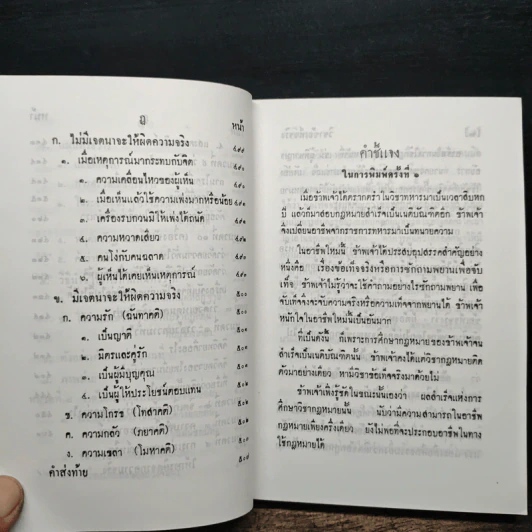 ฎ
หน้า
ก. ไม่มีเจตนาจะให้ผิดความจริง ๔๙๙
๑. เมื่อเหตุการณ์มากระทบกับจิต ๔๙๙
๑. ความเคลื่อนไหวของผู้เห็น ๔๙๙
๒. เมื่อเห็นแล้วใช้ความเพ่งมากหรือน้อย ๔๙๙
๓. เครื่องรบกวนมิให้เพ่งได้ถนัด ๔๙๙
๔. ความหวาดเสียว ๔๙๙
๕. คนโง่กับคนฉลาด ๔๙๙
๖. ผู้เห็นได้เคยเห็นเหตุการณ์ ๔๙๙
ข. มีเจตนาจะให้ผิดความจริง ๕๐๐
ก. ความรัก (ฉันทาคติ) ๕๐๐
๑. เป็นญาติ ๕๐๐
๒. มิตรและคู่รัก ๕๐๑
๓. เป็นผู้มีบุญคุณ
๔. เป็นผู้ให้ประโยชน์ตอบแทน
ข. ความโกรธ (โทสาคติ)
ค. ความกลัว (ภยาคติ)
ง. ความเขลา (โมหาคติ)
คำส่งท้าย
คำชี้แจง
ในการพิมพ์ครั้งที่ ๑
เมื่อข้าพเจ้าได้ตรากตรำในวิชาทหารมาเป็นเวลาสิบหก
ปี แล้วก็มาสอบกฎหมายสำเร็จเป็นเนติบัณฑิตอีก ข้าพเจ้า
จึงเปลี่ยนอาชีพจากราชการทหารมาเป็นทนายความ
ในอาชีพใหม่นี้ ข้าพเจ้าได้ประสบอุปสรรคสำคัญอย่าง
หนึ่งคือ เรื่องข้อเท็จจริงหรือการซักถามพยานเพื่อจับ
เท็จ ข้าพเจ้าไม่รู้ว่าจะใช้คำถามอย่างไรซักถามพยาน เพื่อ
จับเท็จจึงจะจับความจริงหรือความเท็จจากพยานได้ ข้าพเจ้า
หนักใจในอาชีพใหม่นี้เป็นอันมาก
ที่เป็นดังนี้ ก็เพราะการศึกษากฎหมายของข้าพเจ้าจน
สำเร็จเป็นเนติบัณฑิตนั้น ข้าพเจ้าคงได้แต่วิชากฎหมายติด
ตัวมาอย่างเดียว หามีวิชาข้อเท็จจริงมาด้วยไม่
ข้าพเจ้าเพิ่งรู้ชัดในขณะนั้นเองว่า ผลสำเร็จแห่งการ
ศึกษาวิชากฎหมายนั้น นับว่ามีความสามารถในอาชีพ
กฎหมายเพียงครึ่งเดียว ยังไม่พอที่จะประกอบอาชีพในทาง
ใช้กฎหมายได้